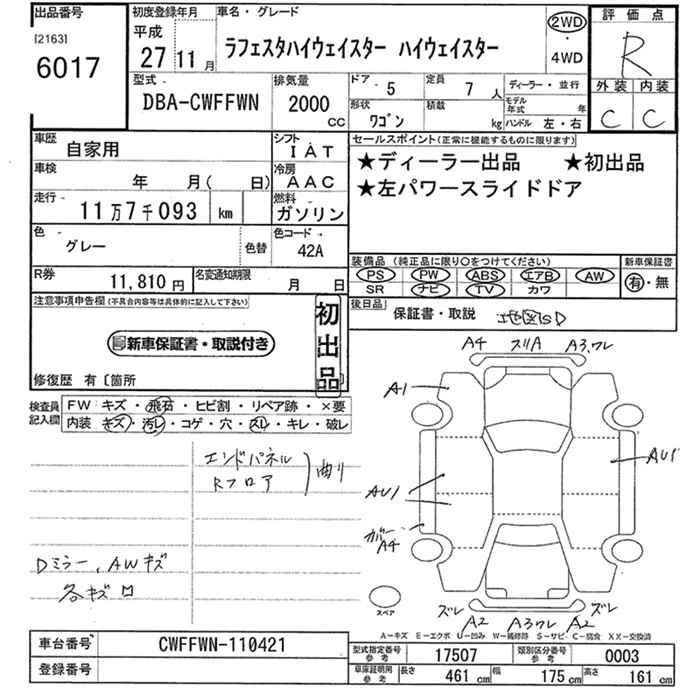 出品番号
[2163]
6017
初度登録年月
平成
27 11月
車名・グレード
ラフェスタハイウェイスター ハイウェイスター
2WD
・
4WD
評価点
R
外装 内装
C C
型式
DBA-CWFFWN
排気量
2000
CC
ドア 5
定員 7人
ディーラー・並行
形状
ワゴン
積載 kg
モデル年式 年
ハンドル 左・右
車歴
自家用
シフト
IAT
車検
年 月( 日)
冷房
AAC
走行
11万7千093 km
燃料
ガソリン
色
グレー
色替
色コード
42A
R券
11,810円
名変通知期限
月 日
セールスポイント(正常に機能するものに限ります)
★ディーラー出品 ★初出品
★左パワースライドドア
装備品 (純正品に限り○をつけてください)
PS PW ABS エアB AW
SR ナビ TV カワ
新車保証書
有・無
後日品
保証書・取説 地図SD
注意事項申告欄(不具合内容等は具体的に記入して下さい)
新車保証書・取説付き
初出品
修復歴 有〔箇所
検査員記入欄
FW キズ・飛石・ヒビ割・リペア跡・×要
内装 キズ・汚レ・コゲ・穴・スレ・キレ・破レ
エンドパネル
Rフロア
曲り
Dミラー,AWキズ
各キズ凹
A4 スリA A3,ワレ
A1
AU1
AU1
カバー
A4
スペア
ズレ A2 A3ワレ A2 ズレ
A-キズ E-エクボ U-凹み W-補修跡 S-サビ C-腐食 XX-交換済
車台番号
CWFFWN-110421
登録番号
型式指定番号
参考
17507
類別区分番号
参考
0003
車庫証明用
参考
長さ 461cm
幅 175cm
高さ 161cm